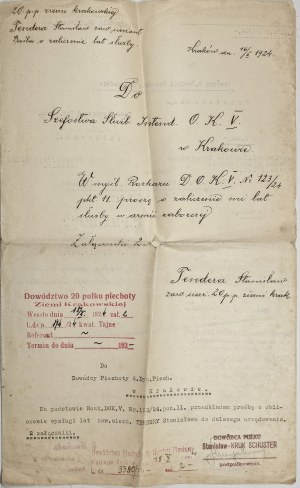 20 p.p. ziemi krakowskiej
Tendera Stanisław zaw. sierżant
Prośba o zaliczenie lat służby
Kraków dn. 16/X 1924.
Do
Szefostwa Służb Intend. O.K. V.
w Krakowie
W myśl Rozkazu D.O.K. V. Nr 123/24
pkt 11. proszę o zaliczenie mi lat
służby w armii zaborczej
Załączniki 2
Tendera Stanisław
zaw. sier. 20 p.p. ziemi krak.
Dowództwo 20 pułku piechoty
Ziemi Krakowskiej
Weszło dnia 192 4 zał. 2
L.dz. 24 kwat. Tajne
Referent
Termin do dnia 192
Do
Dowódcy Piechoty 6.Dyw.Piech.
w Krakowie.
Na podstawie Rozk.DOK.V. Nr.123/24.pkt.11. przedkładam prośbę o obli-
czenie wysługi lat zaw.sierż. TENDERY Stanisława do dalszego urzędowania.
2 załączniki.
DOWÓDCA PUŁKU
Stanisław KRUK SCHUSTER
podpułkownik.